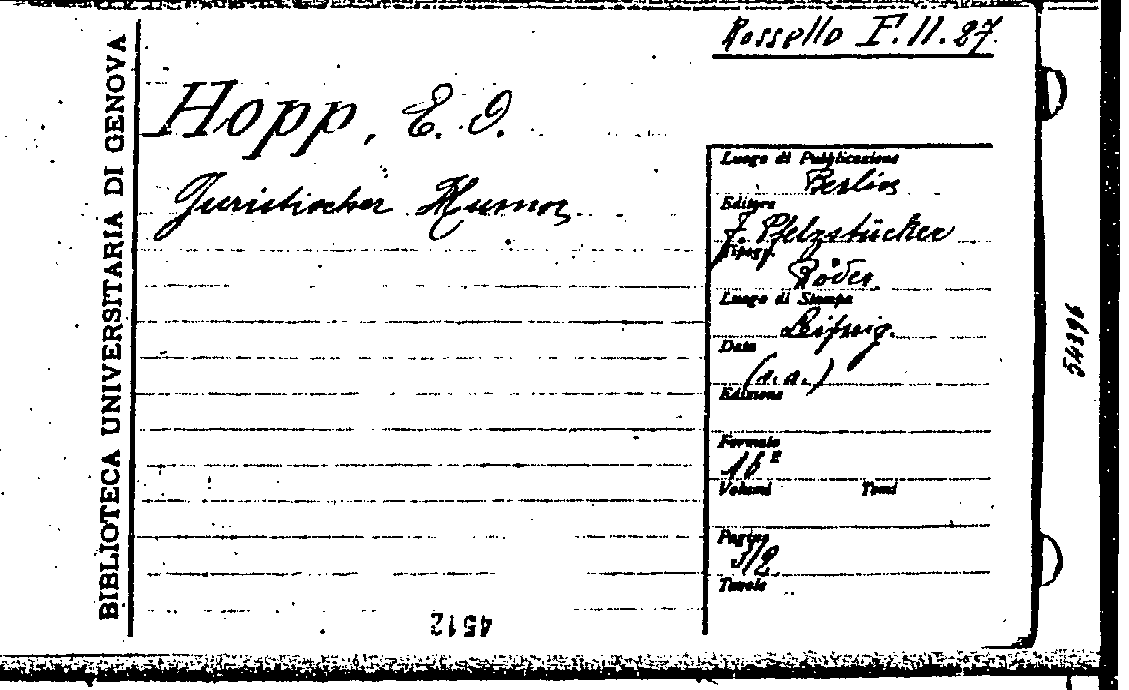 Rossello F.II.27
BIBLIOTECA UNIVERSITARIA DI GENOVA
Hopp, E. O.
Juristischer Humor
Luogo di Pubblicazione
Berlin
Editore
F. Pfeilstücker
Tipogr.
Röder
Luogo di Stampa
Leipzig.
Data
(s.a.)
Edizione
Formato
16º
Volumi Tomi
Pagine
312
Tavole
4512
54396